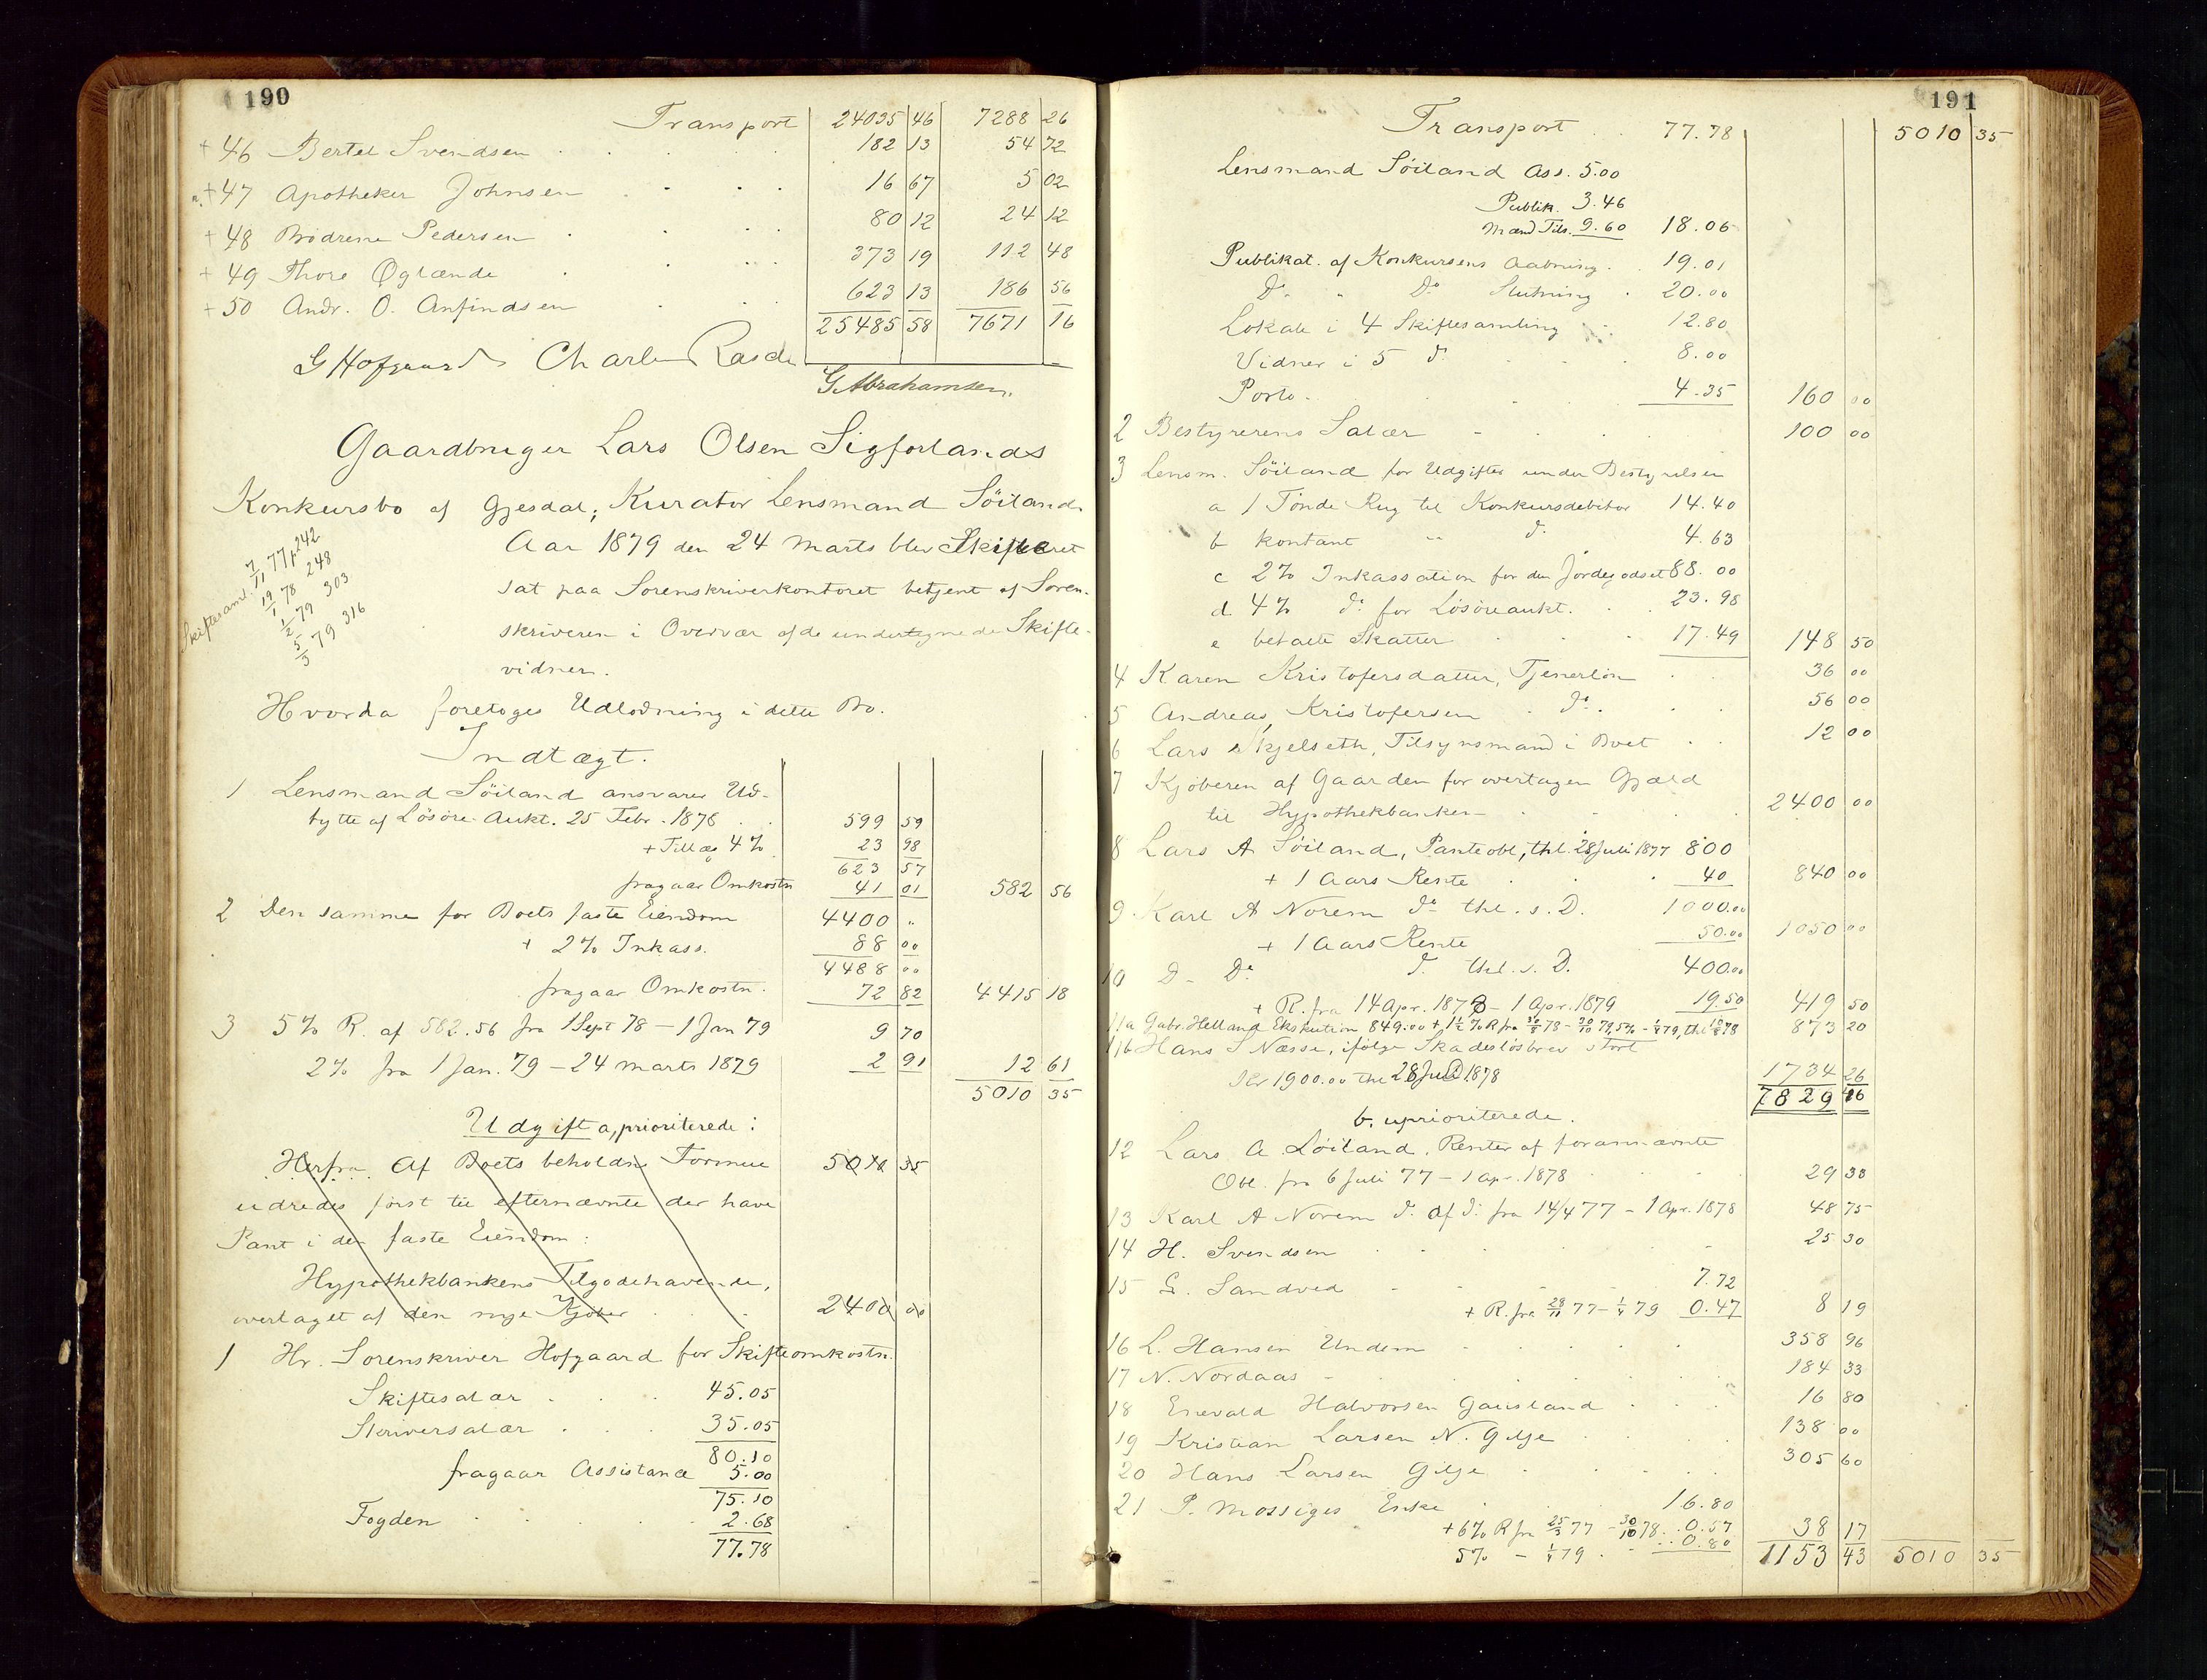 190
Transport 24095 46 7288 26
+ 46 Bertel Svendsen 182 13 54 72
+ 47 Apotheker Johnsen 16 67 5 02
+ 48 Brødrene Pedersen 80 12 24 12
+ 49 Thore Øglænde 373 19 112 48
+ 50 Andr. O. Anfindsen 623 13 186 56
25485 58 7671 16
G Hofgaard Charles Rasch
G. Abrahamsen.
Gaardbruger Lars Olsen Sigforlands
Konkursbo af Gjesdal; Kurator Lensmand Söiland.
Skiftesaml. 7/11 77 p 242
19/1 78 248
1/2 79 303
5/3 79 316
Aar 1879 den 24 Marts blev Skifteret
sat paa Sorenskriverkontoret betjent af Soren-
skriveren i Overvær af de undertegnede Skifte-
vidner.
Hvorda foretoges Udlodning i dette Bo.
Indtægt.
1 Lensmand Söiland ansvarer Ud-
bytte af Lösöre Aukt. 25 Febr. 1878 599 59
+ Tillæg 4% 23 98
623 57
fragaar Omkostn 41 01 582 56
2 Den samme for Boets faste Eiendom 4400 "
+ 2% Inkass. 88 00
4488 00
fragaar Omkostn. 72 82 4415 18
3 5% R. af 582.56 fra 1 Sept 78 – 1 Jan 79 9 70
2% fra 1 Jan. 79 – 24 marts 1879 2 91 12 61
5010 35
Udgift a, prioriterede:
Herfra Af Boets beholdne Formue 5010 35
udredes först til efternævnte der have
Pant i den faste Eiendom:
Hypothekbankens Tilgodehavende,
overtaget af den nye Kjöber 2400 00
1 Hr. Sorenskriver Hofgaard for Skifteomkostn.
Skiftesalær 45.05
Skriversalær 35.05
80.10
fragaar Assistance 5.00
75.10
Fogden 2.68
77.78
191
Transport 77.78 5010 35
Lensmand Söiland Ass. 5.00
Publik. 3.46
Mænd Tils. 9.60 18.06
Publikat. af Konkursens Aabning 19.01
Do " Do Slutning 20.00
Lokale i 4 Skiftesamling 12.80
Vidner i 5 do 8.00
Porto 4.35 160 00
2 Bestyrerens Salær 100 00
3 Lensm. Söiland for Udgifter under Bestyrelsen
a 1 Tönde Rug til Konkursdebitor 14.40
b kontant " do 4.63
c 2% Inkassation for den Jordegodset 88.00
d 4% do for Lösöreaukt. 23.98
e betalte Skatter 17.49 148 50
4 Karen Kristofersdatter, Tjenerlön 36 00
5 Andreas Kristofersen do 56 00
6 Lars Skjelseth, Tilsynsmand i Boet 12 00
7 Kjöberen af Gaarden for overtagen Gjæld
til Hypothekbanken 2400 00
8 Lars A Söiland, Panteobl, thl. 28 Juli 1877 800
+ 1 Aars Rente 40 840 00
9 Karl A Norem do thl. s. D. 1000.00
+ 1 Aars Rente 50.00 1050 00
10 D- Do do thl. s. D. 400.00
+ R. fra 14 Apr. 1878 – 1 Apr. 1879 19.50 419 50
11a Gabr. Helland Exekution 849.00 873 20
11b Hans S Næsse, ifölge Skadeslösbrev stort
1900.00 thl 28 1878 1734 26
7829 46
b. uprioriterede.
12 Lars A Söiland, Renter af forannævnte
Obl. fra 6 Juli 77 – 1 apr. 1878 29 33
13 Karl A Norem do af do fra 14/4 77 – 1 Apr. 1878 48 75
14 H. Svendsen 25 30
15 G. Sandved 7.72
+ R. fra 28/11 77 – 1/4 79 0.47 8 19
16 L. Hansen Undem 358 96
17 N. Nordaas 184 33
18 Enevald Halvorsen Gausland 16 80
19 Kristian Larsen N. Gilje 138 00
20 Hans Larsen Gilje 305 60
21 P. Mossiges Enke 16.80
+ 6% R fra 25/3 77 – 30/10 78 0.57 38 17
5% – 1/4 79 0.80
1153 43 5010 35